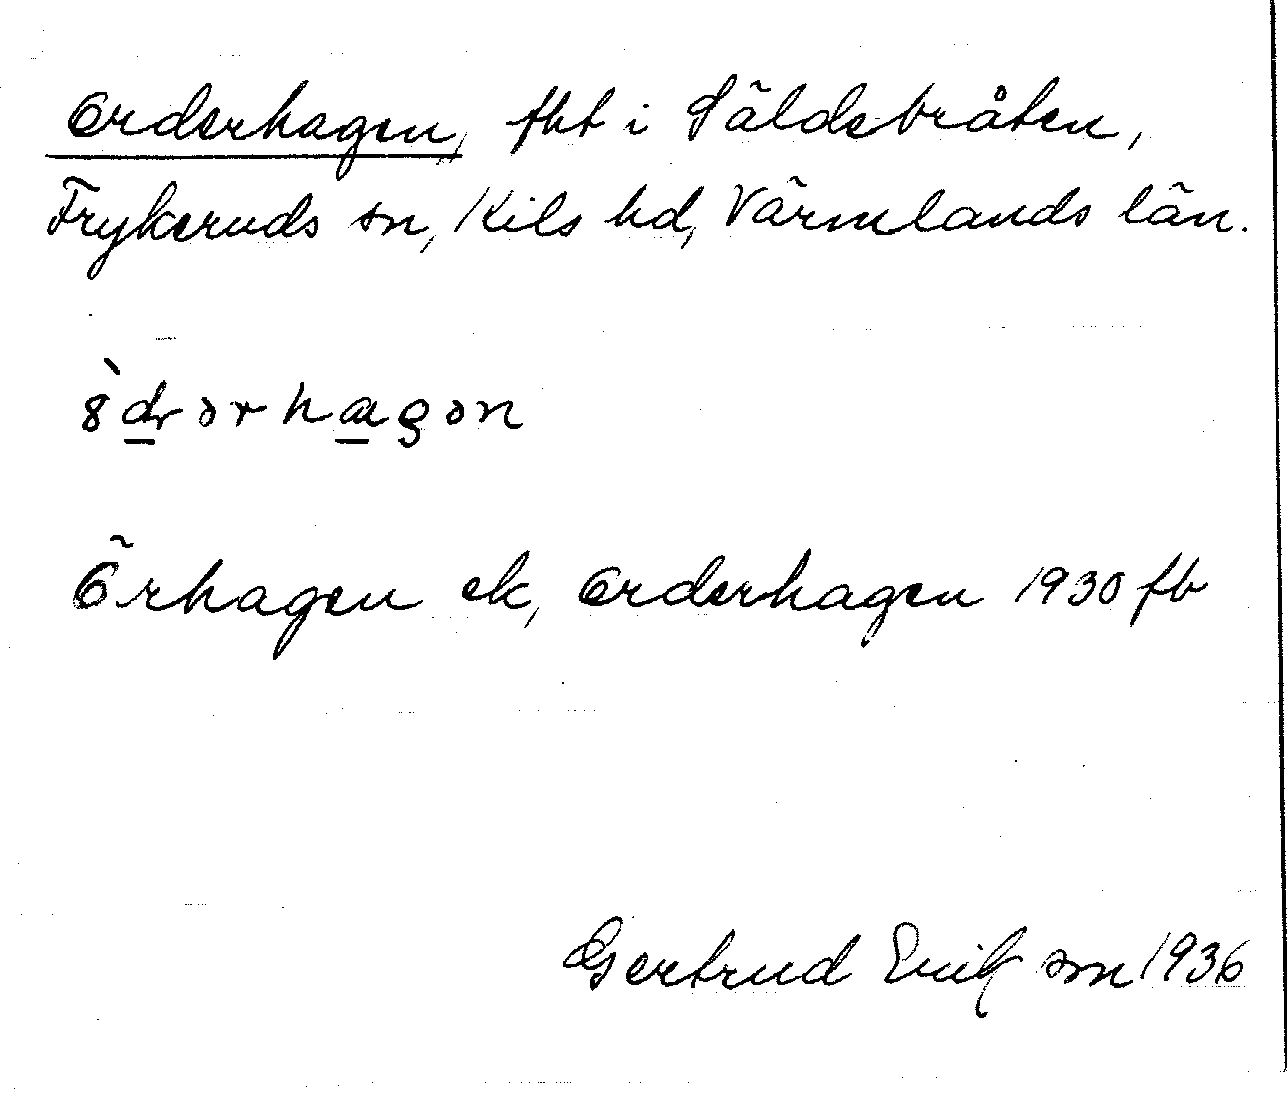 Orderhagen, fht i Säldebråten,
Frykeruds sn, Kils hd, Värmlands län.
Örhagen ek, Orderhagen 1930 fb
Gertrud Eriksson 1936